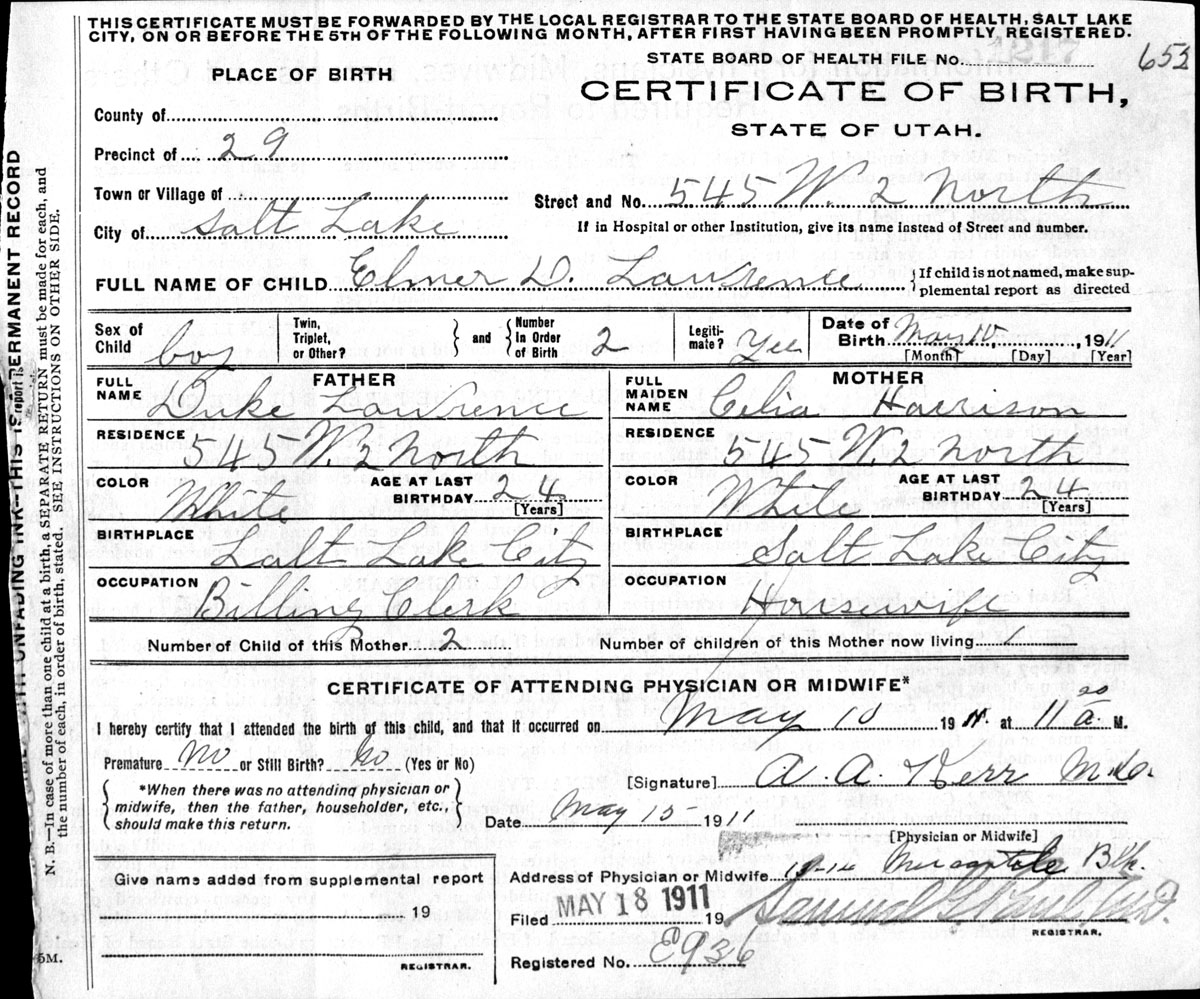 THIS CERTIFICATE MUST BE FORWARDED BY THE LOCAL REGISTRAR TO THE STATE BOARD OF HEALTH, SALT LAKE
CITY, ON OR BEFORE THE 5TH OF THE FOLLOWING MONTH, AFTER FIRST HAVING BEEN PROMPTLY REGISTERED.
STATE BOARD OF HEALTH FILE No.
653
PLACE OF BIRTH
CERTIFICATE OF BIRTH,
STATE OF UTAH.
County of
Precinct of 29
Town or Village of
Street and No. 545 W. 2 North
City of Salt Lake
If in Hospital or other Institution, give its name instead of Street and number.
FULL NAME OF CHILD Elmer D. Lawrence {If child is not named, make sup-
plemental report as directed
Sex of Child boy
Twin, Triplet, or Other? } and { Number In Order of Birth 2
Legiti- mate? Yes
Date of Birth May 10, 1911
[Month] [Day] [Year]
FATHER
FULL NAME Duke Lawrence
MOTHER
FULL MAIDEN NAME Celia Harrison
RESIDENCE 545 W. 2 North
RESIDENCE 545 W. 2 North
COLOR White AGE AT LAST BIRTHDAY 24 [Years]
COLOR White AGE AT LAST BIRTHDAY 24 [Years]
BIRTHPLACE Salt Lake City
BIRTHPLACE Salt Lake City
OCCUPATION Billing Clerk
OCCUPATION Housewife
Number of Child of this Mother 2 Number of children of this Mother now living 1
CERTIFICATE OF ATTENDING PHYSICIAN OR MIDWIFE*
I hereby certify that I attended the birth of this child, and that it occurred on May 10 1911. at 11 a M.
Premature No or Still Birth? No (Yes or No)
[Signature] A. A. Kerr M.D.
{ *When there was no attending physician or
midwife, then the father, householder, etc.,
should make this return. }
Date May 15 1911
[Physician or Midwife]
Give name added from supplemental report
19
REGISTRAR.
Address of Physician or Midwife Mercantile Blk.
Filed MAY 18 1911 19
REGISTRAR.
Registered No. E936
N. B.—In case of more than one child at a birth, a SEPARATE RETURN must be made for each, and
the number of each, in order of birth, stated. SEE INSTRUCTIONS ON OTHER SIDE.
UNFADING INK—THIS IS PERMANENT RECORD
5M.